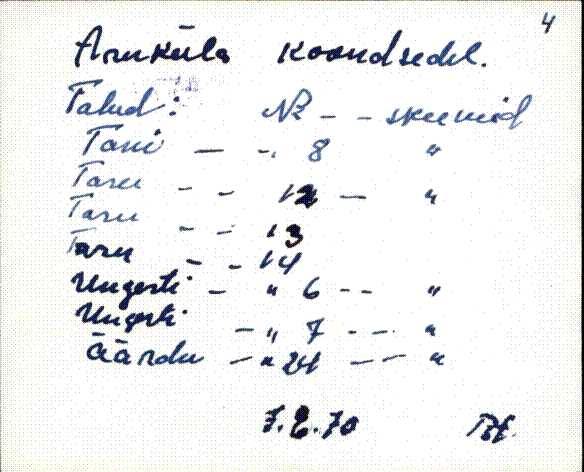 4
Aruküla Koondsedel.
Talud: № - - skeemid
Tani - - " 8 "
Taru - - 12 - "
Taru - - 13
Taru - - 14
Ungerti - " 6 - - "
Ungerti - " 7 - - "
Äärdu - " 24 - - "
7.2.70